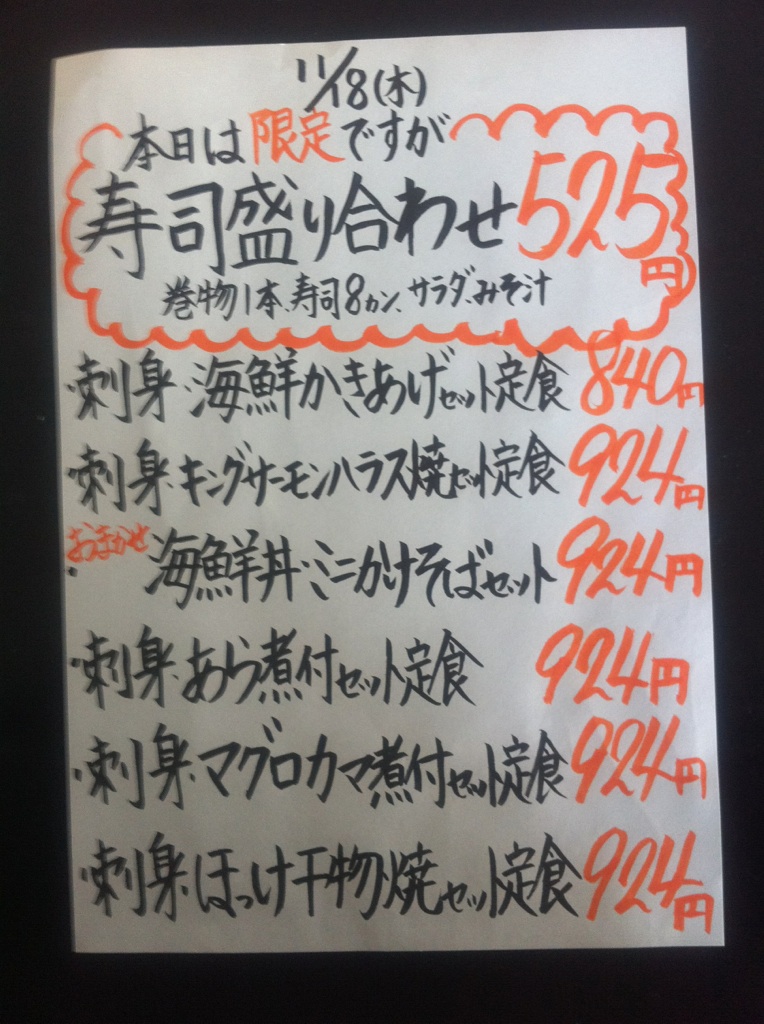 11/18(木)
本日は限定ですが
寿司盛り合わせ525円
巻物1本、寿司8カン、サラダ、みそ汁
・刺身・海鮮かきあげセット定食 840円
・刺身・キングサーモンハラス焼セット定食 924円
おまかせ
・海鮮丼・ミニかけそばセット 924円
・刺身・あら煮付セット定食 924円
・刺身・マグロカマ煮付セット定食 924円
・刺身・ほっけ干物焼セット定食 924円